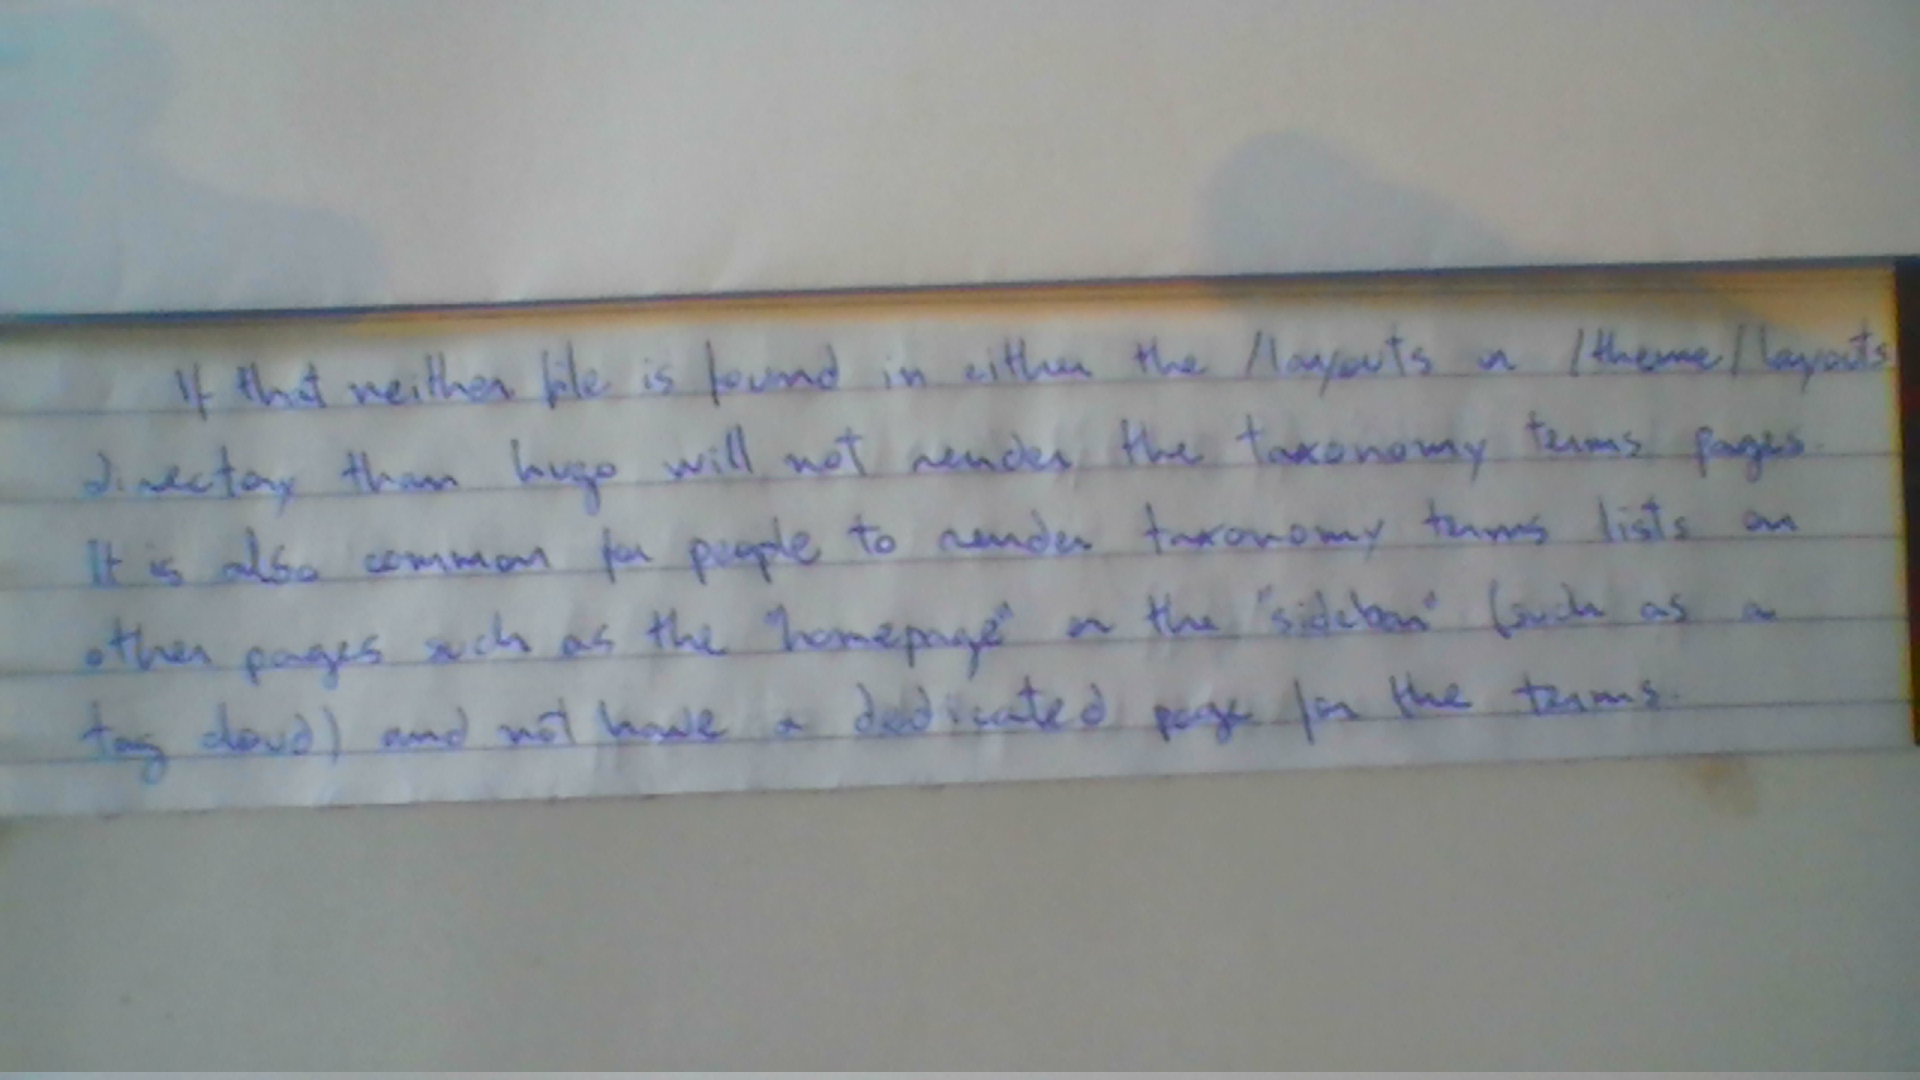 If that neither file is found in either the /layouts or /theme/layouts
directory than hugo will not render the taxonomy terms pages.
It is also common for people to render taxonomy terms lists on
other pages such as the "homepage" or the "sidebar" (such as a
tag cloud) and not have a dedicated page for the terms.